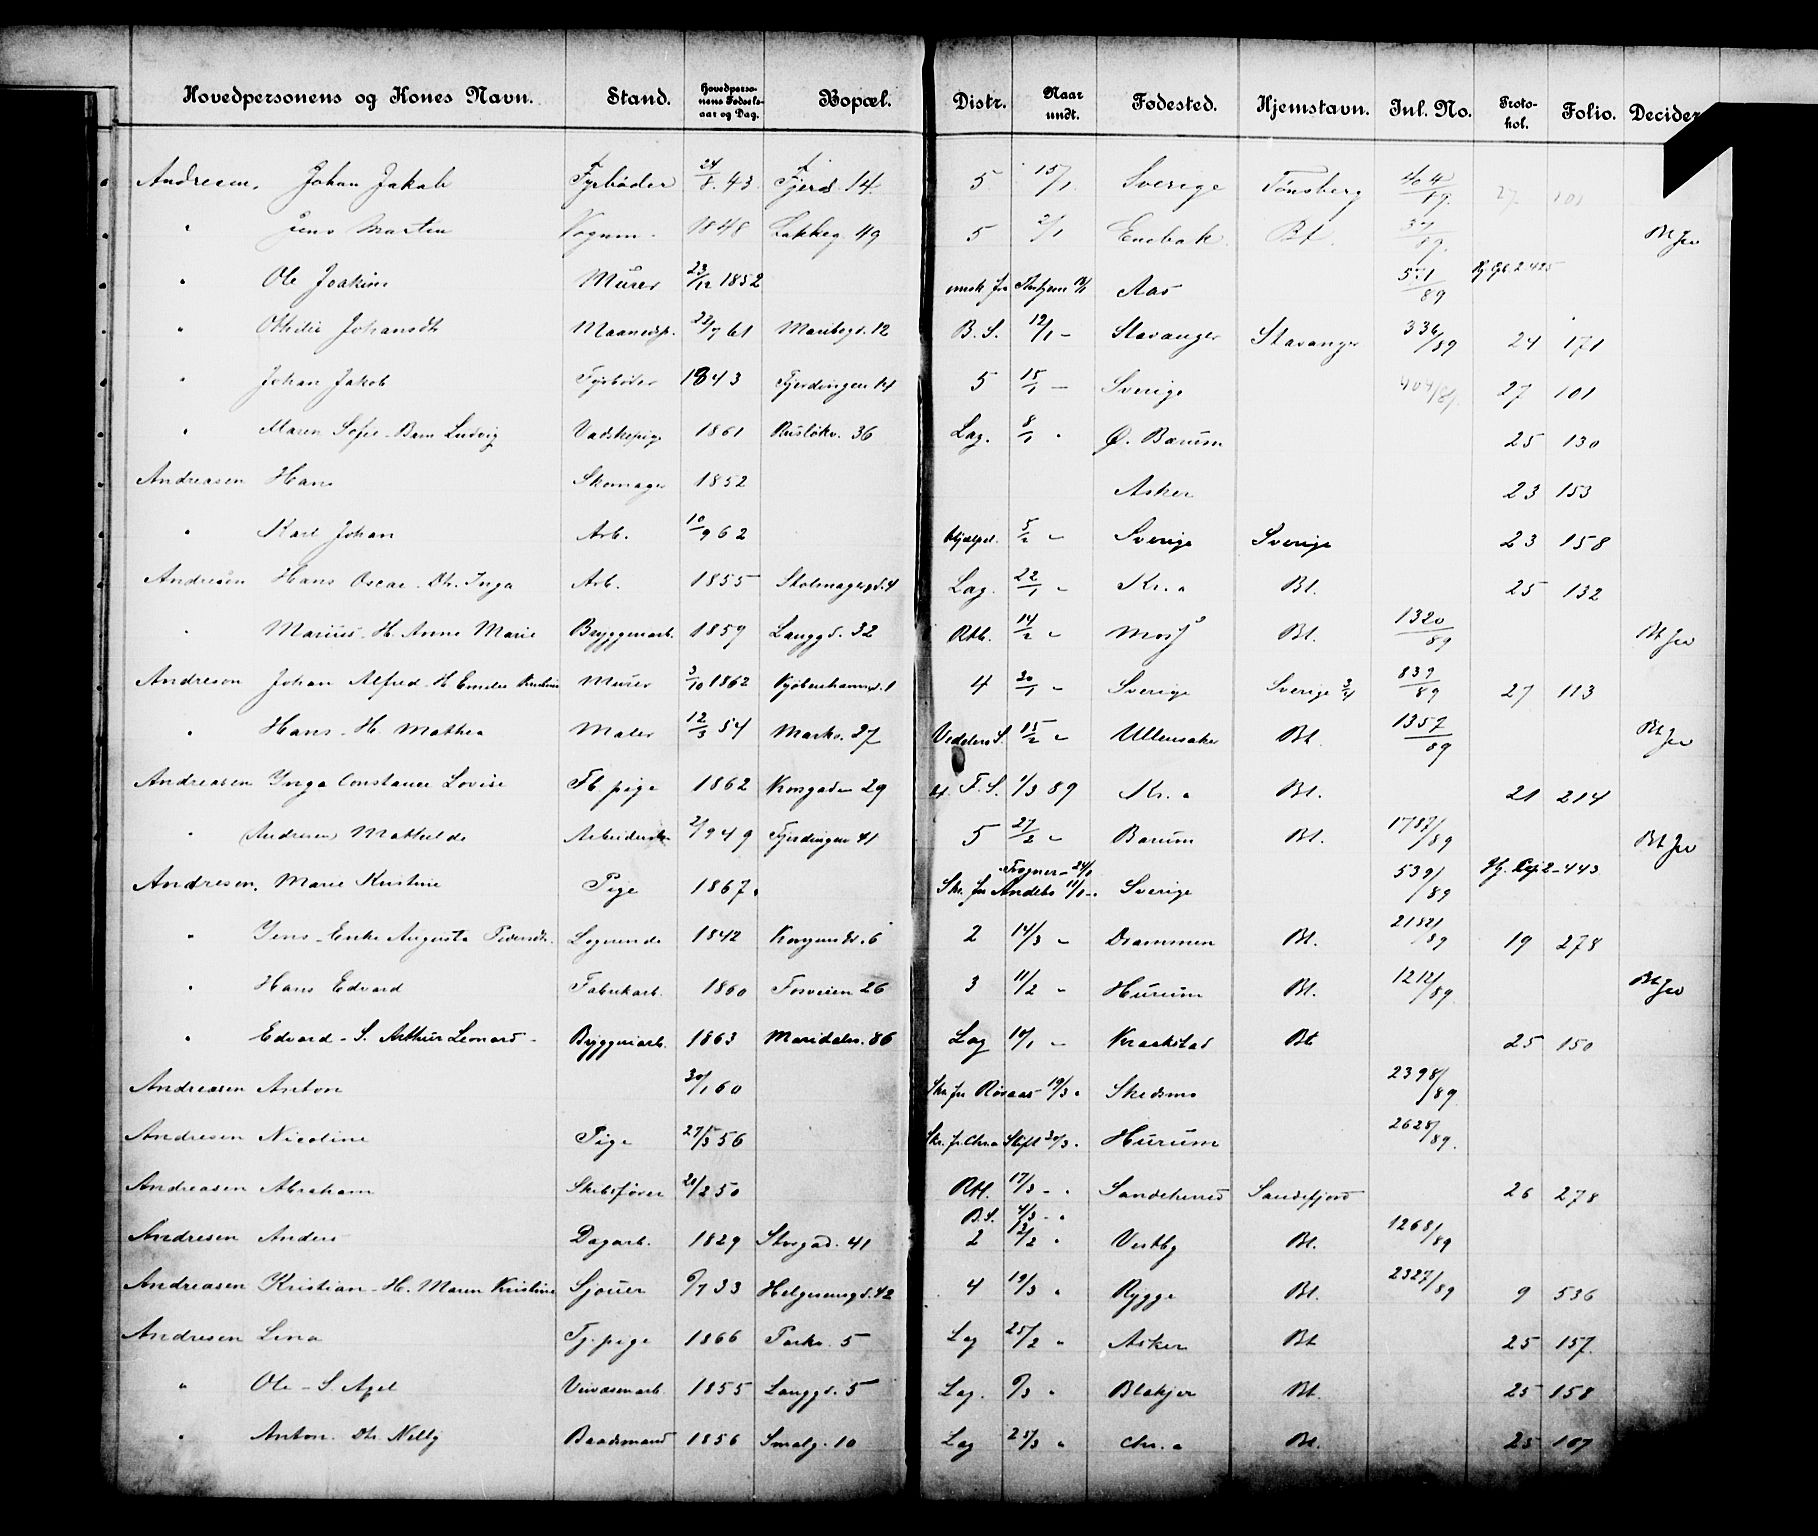 Hovedpersonens og Kones Navn. Stand. Hovedpersonens Fødselsaar og Dag. Bopæl. Distr. Naar undt. Fødested. Hjemstavn. Inl. No. Protokol. Folio. Decider
Andresen, Johan Jakob Fyrbøder 24/8. 43. Fjerd. 14 5 15/1 Sverige Tønsberg 404/89. 27 101
" Jens Martin Vognm. 1848 Lakkeg. 49 5 2/1 Enebak Bt. 37/89. Bt Jw
" Ole Joakim Murer 23/12 1852 Aas 571/89
" Othilie Johansdt Maanedsp. 22/7 61 Maribogd. 12 B. S. 12/1 - Stavanger Stavanger 336/89 24 171
" Johan Jakob Fyrbøder 1843 Fjerdingen 14 5 15/1 - Sverige 404/89. 27 101
" Maren Sofie - Barn Ludvig Vadskepige 1861 Rusløkv. 36 Lag. 8/1 " Ø. Bærum 25 130
Andreasen Hans Skomager 1852 Asker 23 153
" Karl Johan Arb. 10/9 62 Hjælpel. 5/2 " Sverige Sverige 23 158
Andresen Hans Oscar - Dtr. Inga Arb. 1855 Stolmagergd. 4 Lag. 22/1 " Kr.a Bt. 25 132
" Marius - H. Anne Marie Bryggeriarb. 1859 Langgd. 32 Rtb. 14/2 " Moss Bt. 1320/89 Bt Jw
Andreson Johan Alfred - H. Emilie Kristine Murer 3/10 1862 Kjøbenhavnsgd. 1 4 30/1 " Sverige Sverige 3/4 839/89 27 113
" Hans - H. Mathea Maler 12/3 54 Markv. 27 Vedelers S. 15/2 " Ullensaker Bt. 1357/89 Bt Jw
Andreasen Inga Constance Lovise Fb pige 1862 Korsgaden 29 4. F. S. 1/3 89 Kr.a Bt. 21 214
" (Andresen) Mathilde 2/9 49 Fjerdingen 41 5 27/2 " Bærum Bt. 1787/89 Bt Jw
Andresen, Marie Kristine Pige 1867. Skr. fra Andebo 11/1 - Trogner - 24/1 Sverige 539/89 Hj. 2 - 443
" Jens - Enke Augusta Pedersdt. Logerende 1842 6 2 14/3 " Drammen Bt. 2182/89 19 278
" Hans Edvard Fabrikarb. 1860 Fosveien 26 3 11/2 " Hurum Bt. 1212/89. Bt Jw
" Edvard - S. Arthur Leonard - Bryggeriarb. 1863 Maridalsv. 86 Lag 14/1 " Kraakstad Bt 25 150
Andreasen Anton 30/1 60 Skr. fra Røraas 19/3 " Skedsmo 2398/89.
Andresen Nicoline Pige 27/3 56 Skr. fr. Chr.a Stift 20/3 " Hurum 2628/89.
Andreasen Abraham Skibsfører 20/2 50 Rtb. 17/3 - " Sandeherred Sandefjord 26 278
B. S. 4/3 - "
Andresen Anders Dagarb. 1829 Storgad. 41 2 12/2 " Vestby Bt. 1268/89
Andreasen Kristian - H. Maren Kristine Sjouer 6/7 33 Helgesensgd. 42 4 19/3 " Rygge Bt. 2327/89 9 536
Andresen Lina Tj. pige 1866 Parkv. 5 Lag 25/2 " Asker Bt 25 157.
" Ole - S. Axel 1855 Langgd. 5 Lag. 9/3 " Blakjer Bt. 25 158
" Anton. Dtr. Nelly Baadsmand 1856 Smalg. 10 Lag 25/3 " Chr.a Bt. 25 167